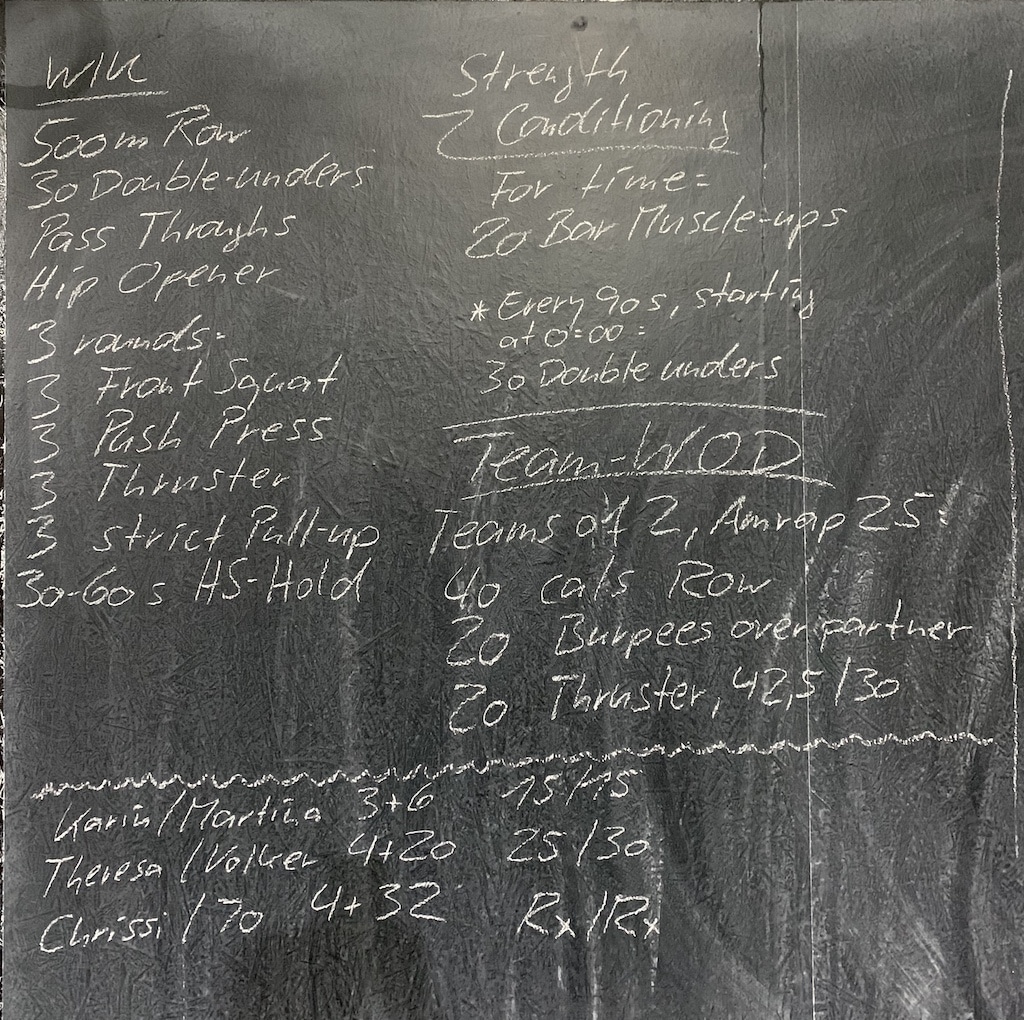 WIU
500m Row
30 Double-unders
Pass Throughs
Hip Opener
3 rounds:
3 Front Squat
3 Push Press
3 Thruster
3 strict Pull-up
30-60s HS-Hold
Strength
& Conditioning
For time:
20 Bar Muscle-ups
* Every 90s, starting
at 0:00:
30 Double unders
Team-WOD
Teams of 2, Amrap 25'
40 cals Row
20 Burpees over partner
20 Thruster, 42,5/30
Karin/Martina 3+6 15/15
Theresa/Volker 4+20 25/30
Chrissi/ 4+32 Rx/Rx